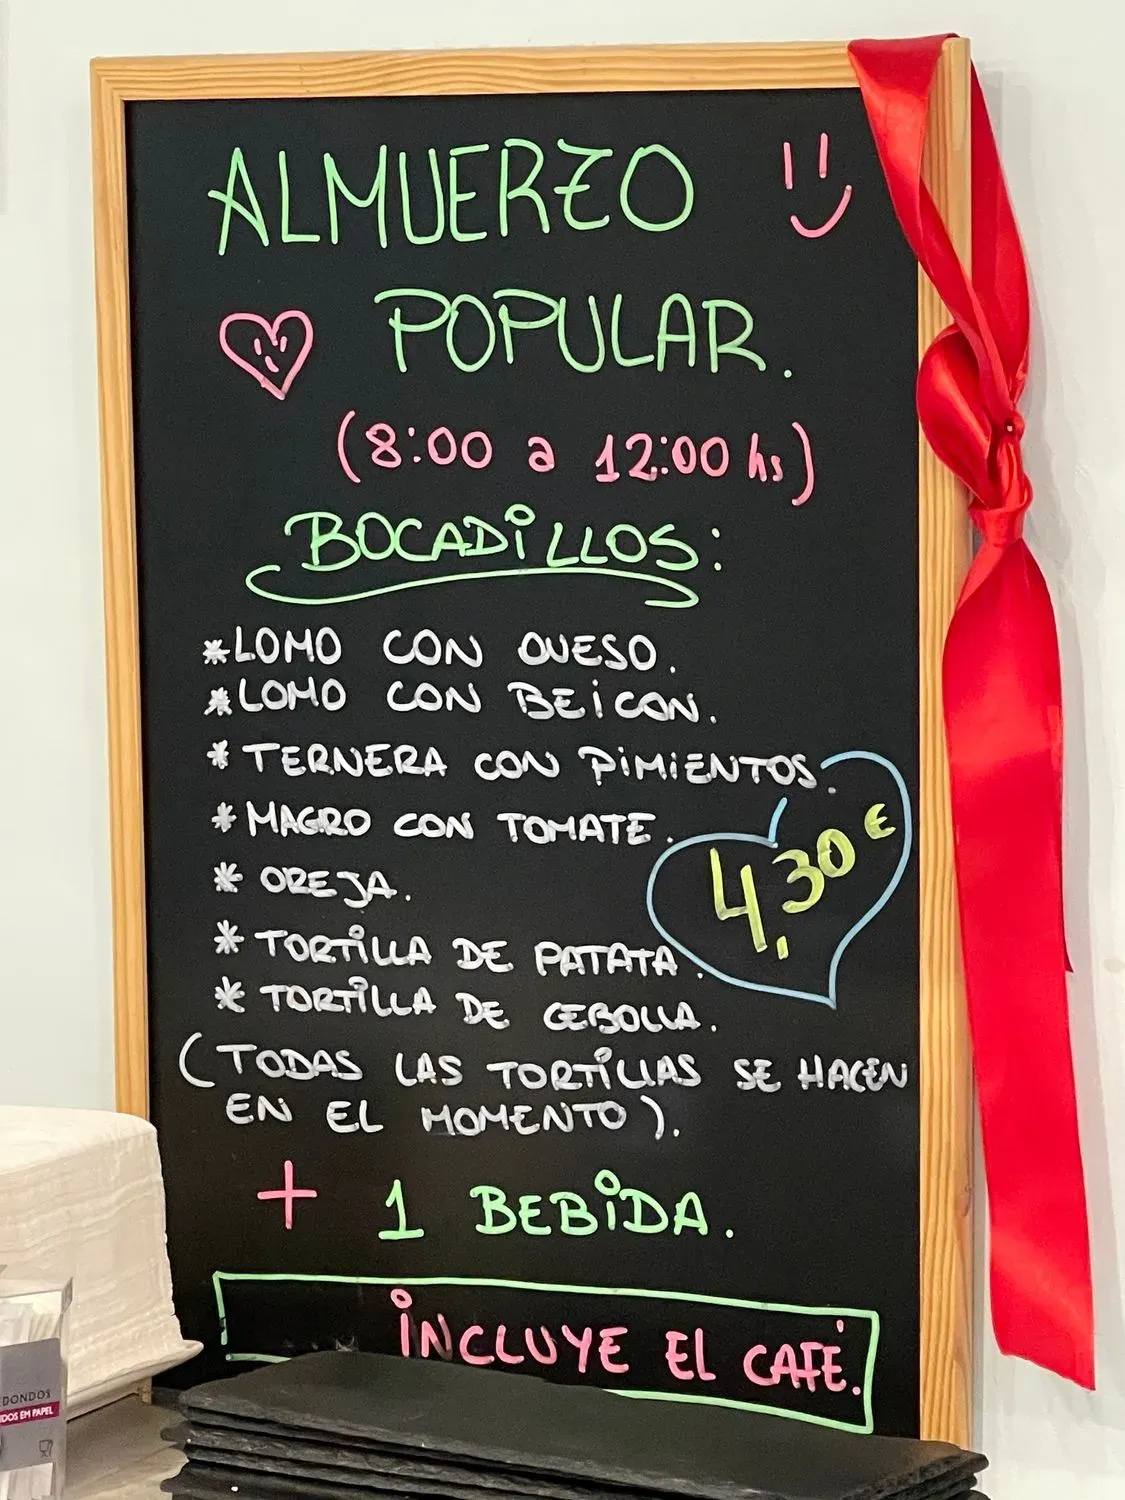 ALMUERZO
POPULAR.
(8:00 a 12:00 hs)
BOCADILLOS:
*LOMO CON QUESO.
*LOMO CON BEICON.
* TERNERA CON PIMIENTOS.
* MAGRO CON TOMATE.
* OREJA.
* TORTILLA DE PATATA.
* TORTILLA DE CEBOLLA.
4,30 €
(TODAS LAS TORTILLAS SE HACEN
EN EL MOMENTO).
+ 1 BEBIDA.
INCLUYE EL CAFÉ.
DONDOS
DOS EM PAPEL